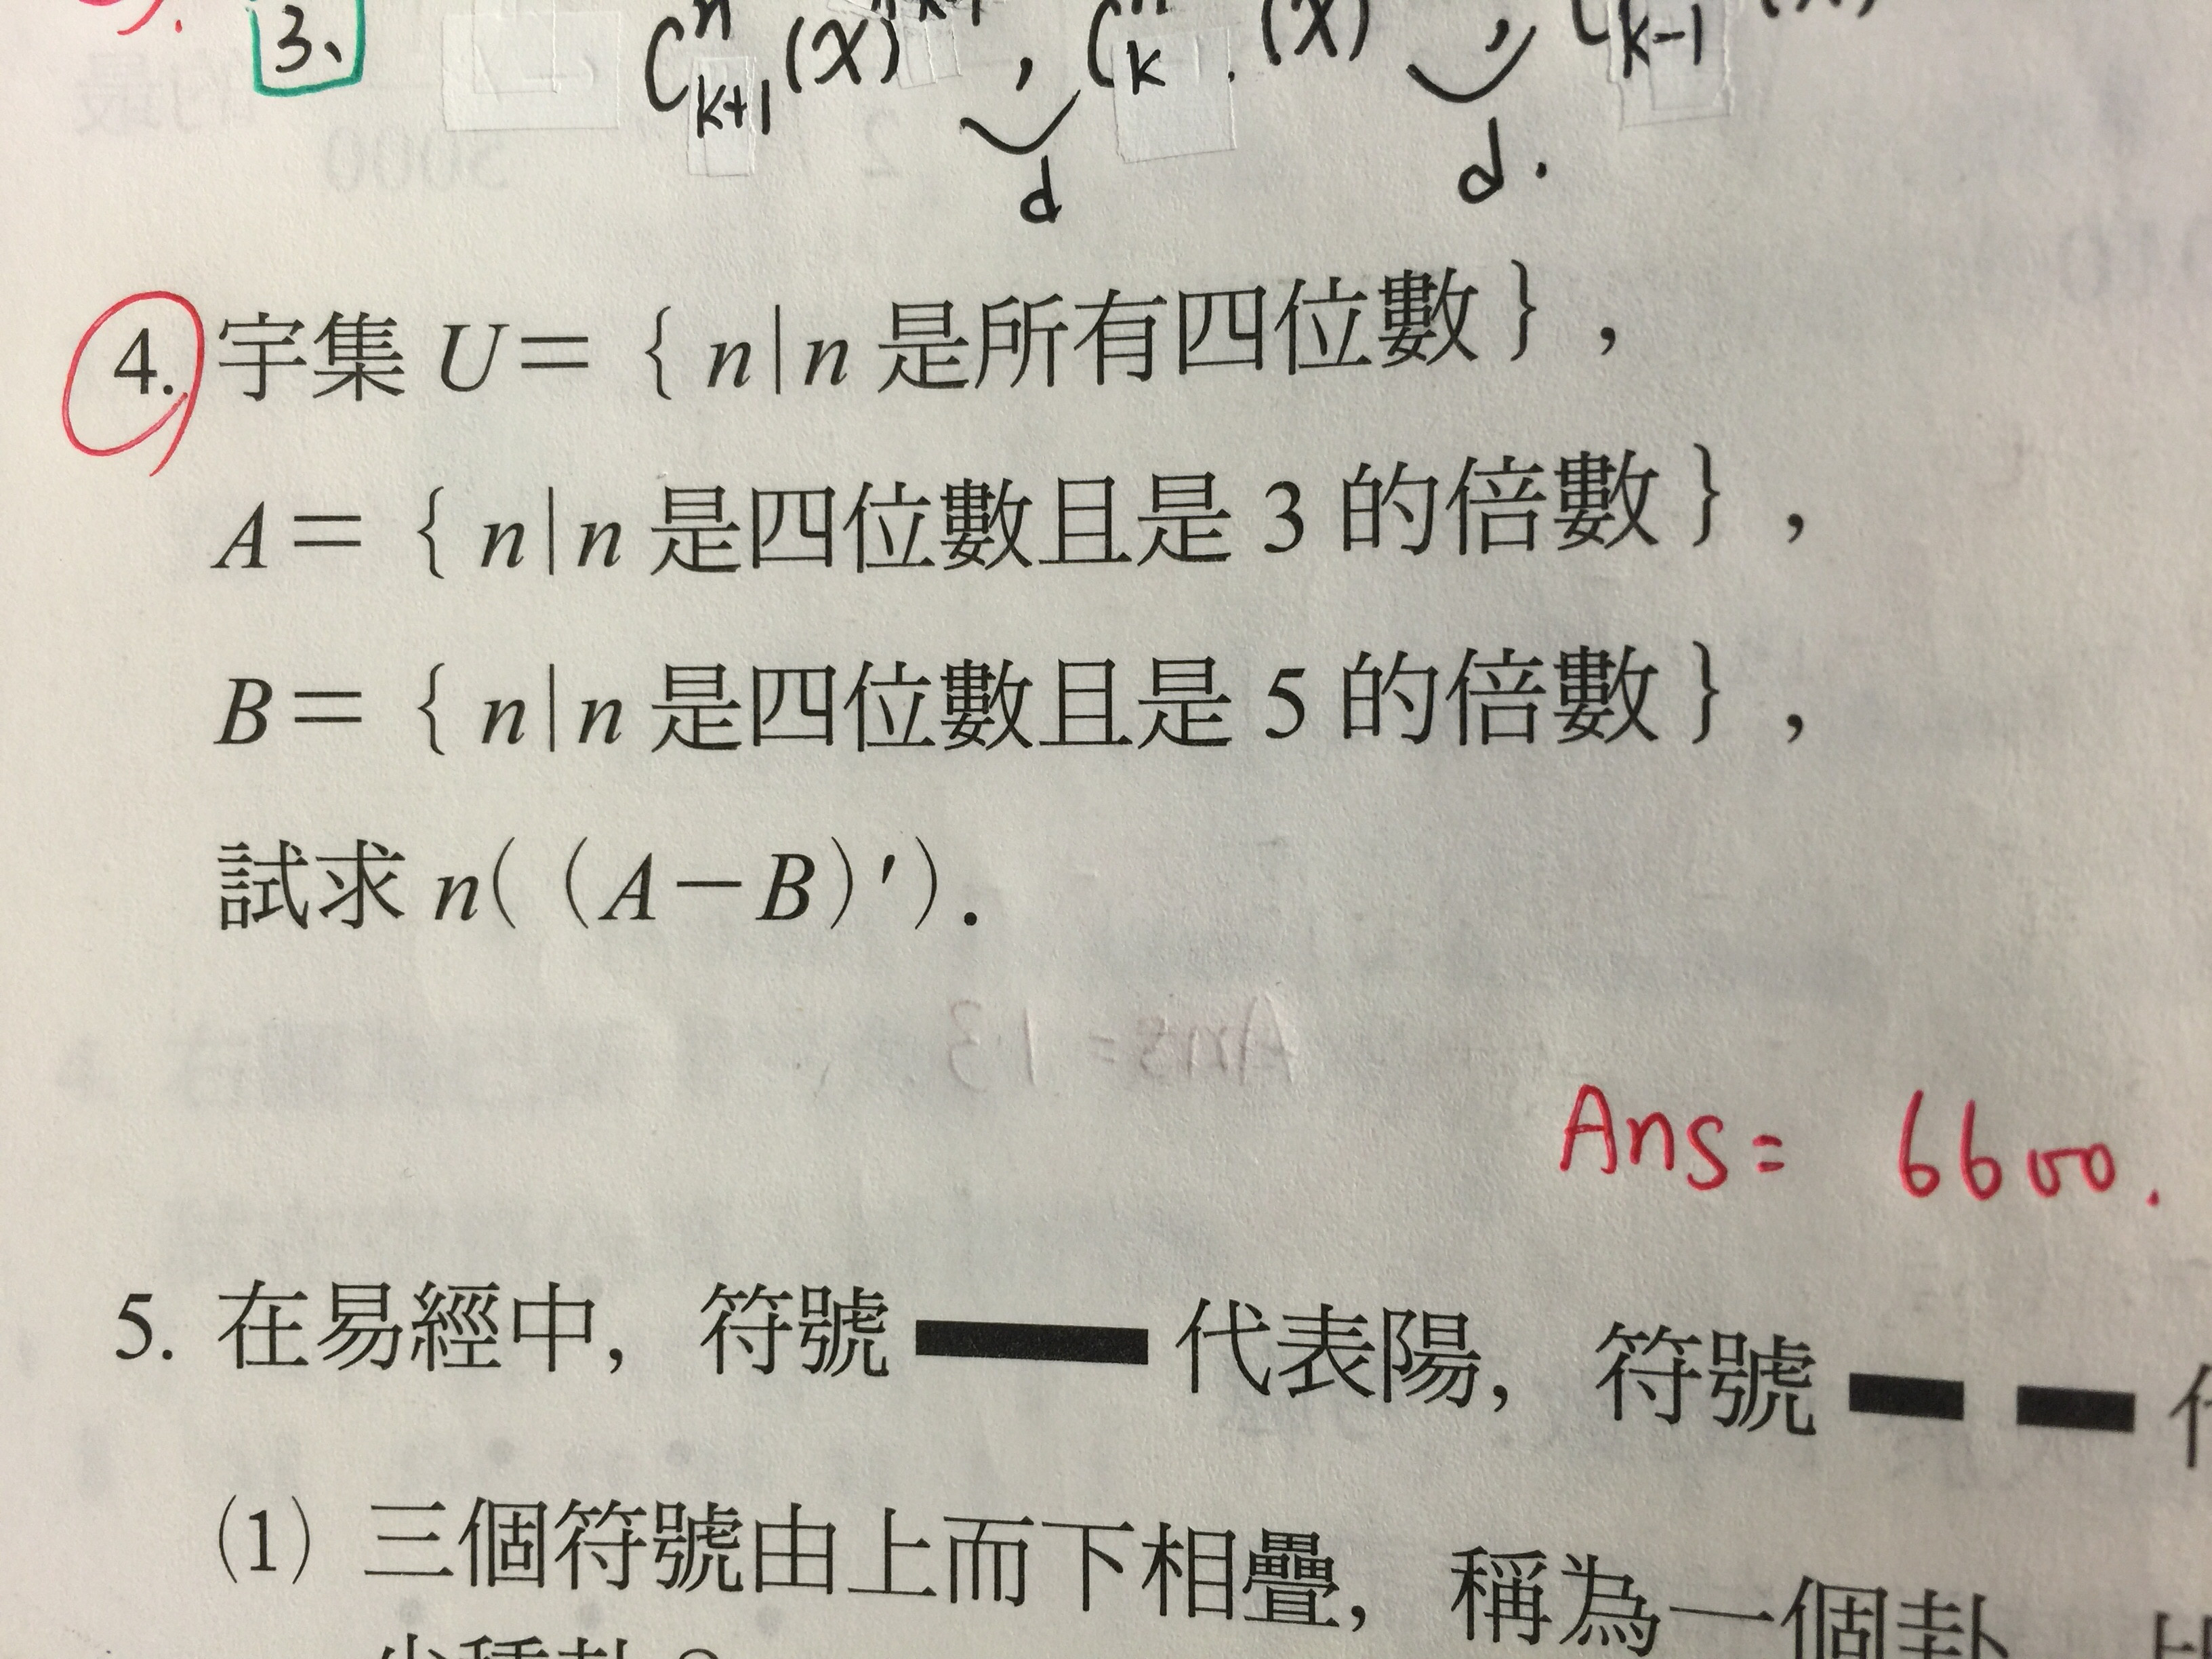 3、 C^n_{k+1}(x) , C^n_k (x) , C_{k-1}
d d.
4. 宇集 U＝ { n|n 是所有四位數 } ,
A＝ { n|n 是四位數且是 3 的倍數 } ,
B＝ { n|n 是四位數且是 5 的倍數 } ,
試求 n( (A－B)′).
Ans= 6600.
5. 在易經中, 符號 ━ 代表陽, 符號 ╍
(1) 三個符號由上而下相疊, 稱為一個卦